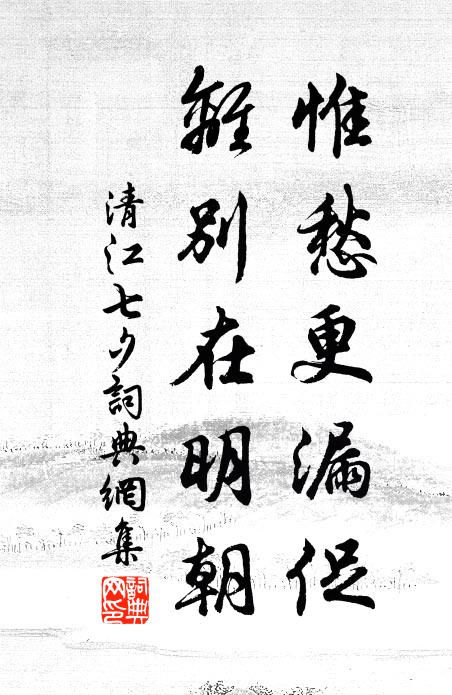 惟愁更漏促
離別在明朝
清江七夕詞典網集
詞典网印